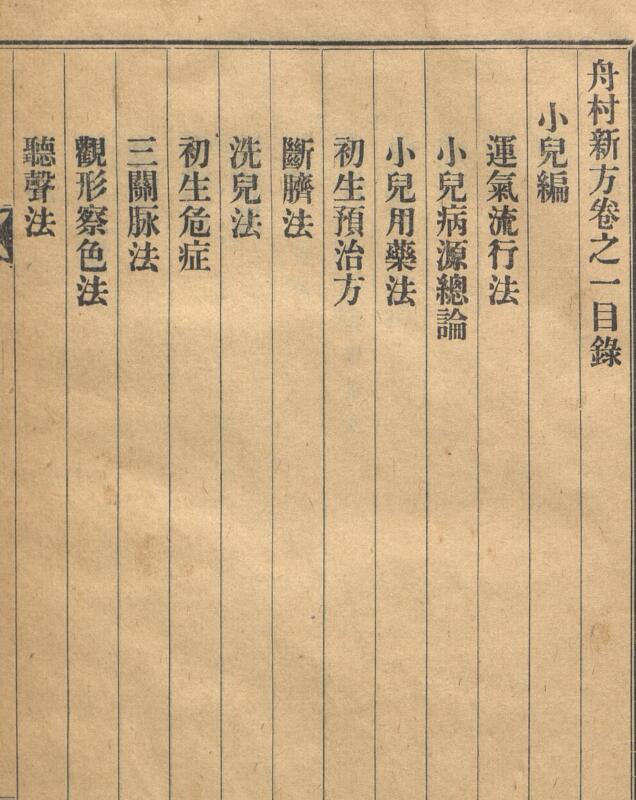 舟村新方卷之一目錄
小兒編
運氣流行法
小兒病源總論
小兒用藥法
初生預治方
斷臍法
洗兒法
初生危症
三關脉法
觀形察色法
聽聲法